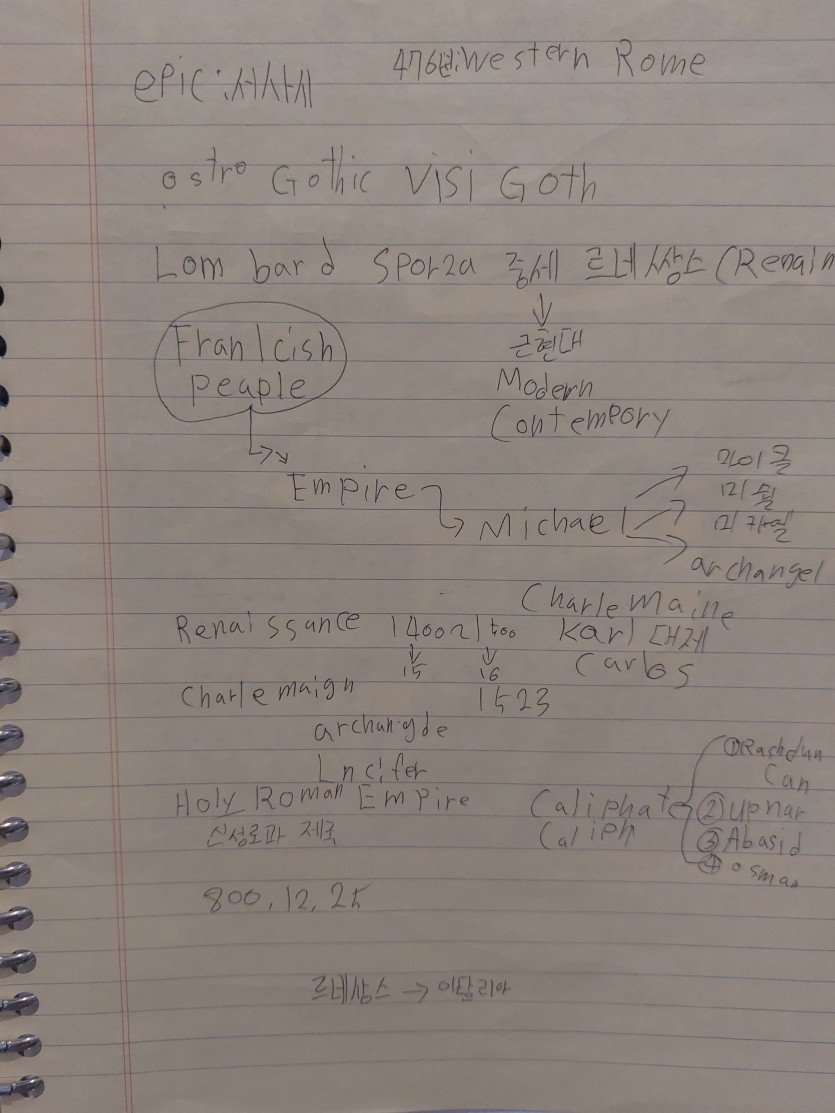 epic:서사시 476년:Western Rome
ostro Gothic Visi Goth
Lom bard Sporza 중세 르네상스 (Renain
Frankish
peaple
근현대
Modern
Contempory
Empire
Michael
마이클
미쉘
미카엘
archangel
Charlemaine
Renaissance 1400~1500 karl 대제
15 16 Carlos
Charlemaign 1523
archangde
Lncifer
Holy Roman Empire
신성로마 제국
Caliphate
Caliph
① Rashdun
Can
②
③ Abasid
④ osman
800, 12, 25
르네상스 → 이탈리아